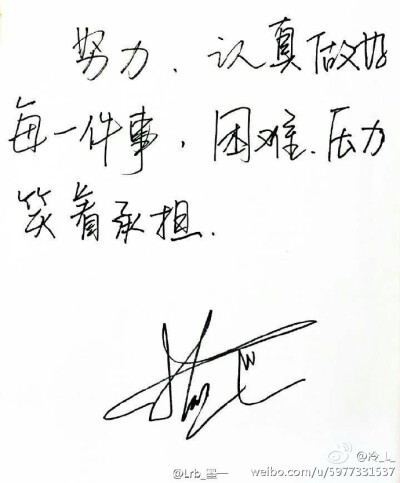 努力、认真做好
每一件事，困难、压力
笑着承担.
@冷_L_
@Lrb_墨一
weibo.com/u/5977331537